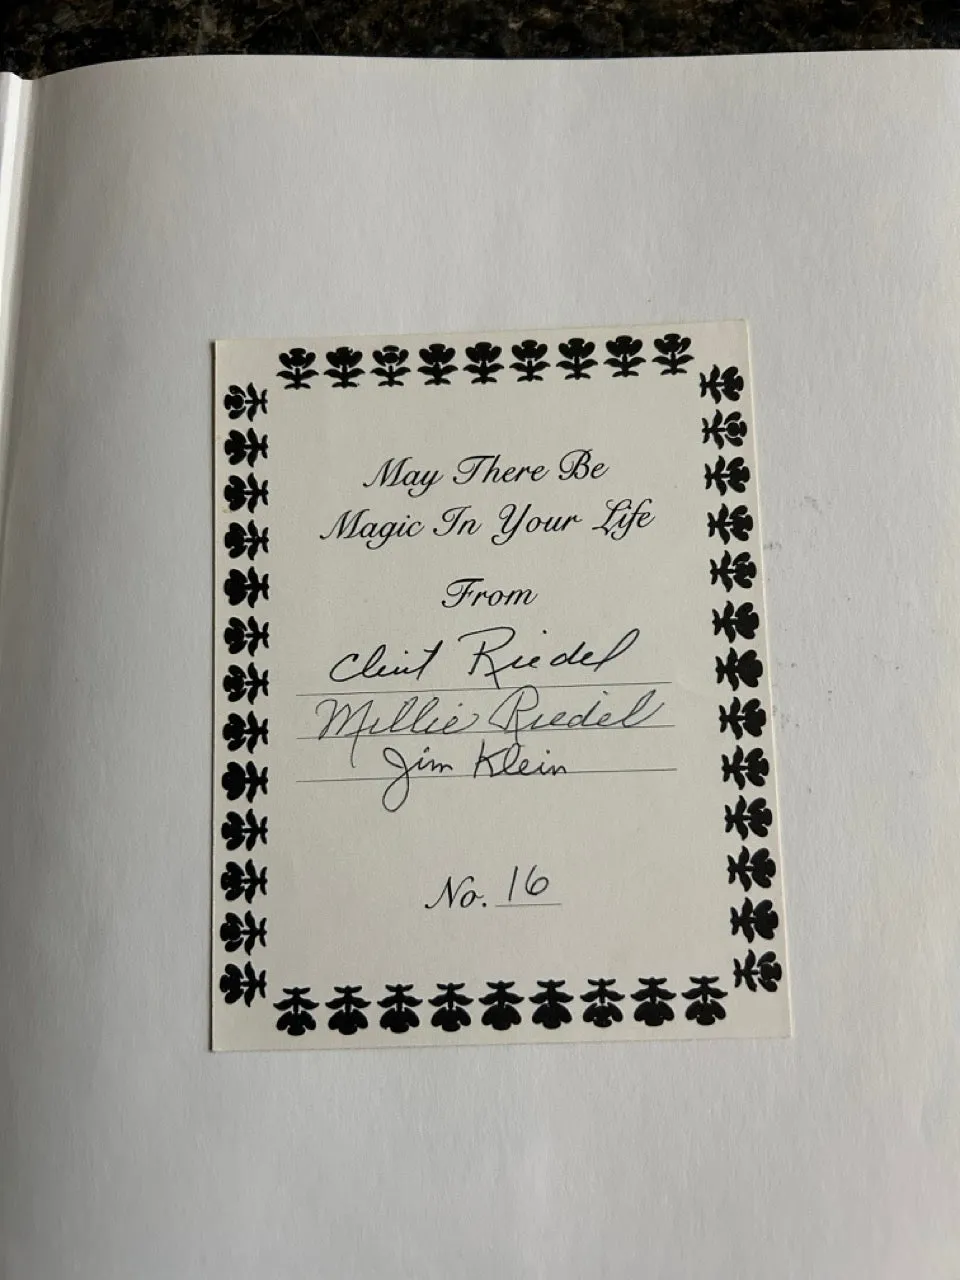 May There Be
Magic In Your Life
From
Clint Riedel
Millie Riedel
Jim Klein
No. 16